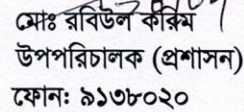 মোঃ রবিউল করিম
উপপরিচালক (প্রশাসন)
ফোন: ৯১৩৮০২০